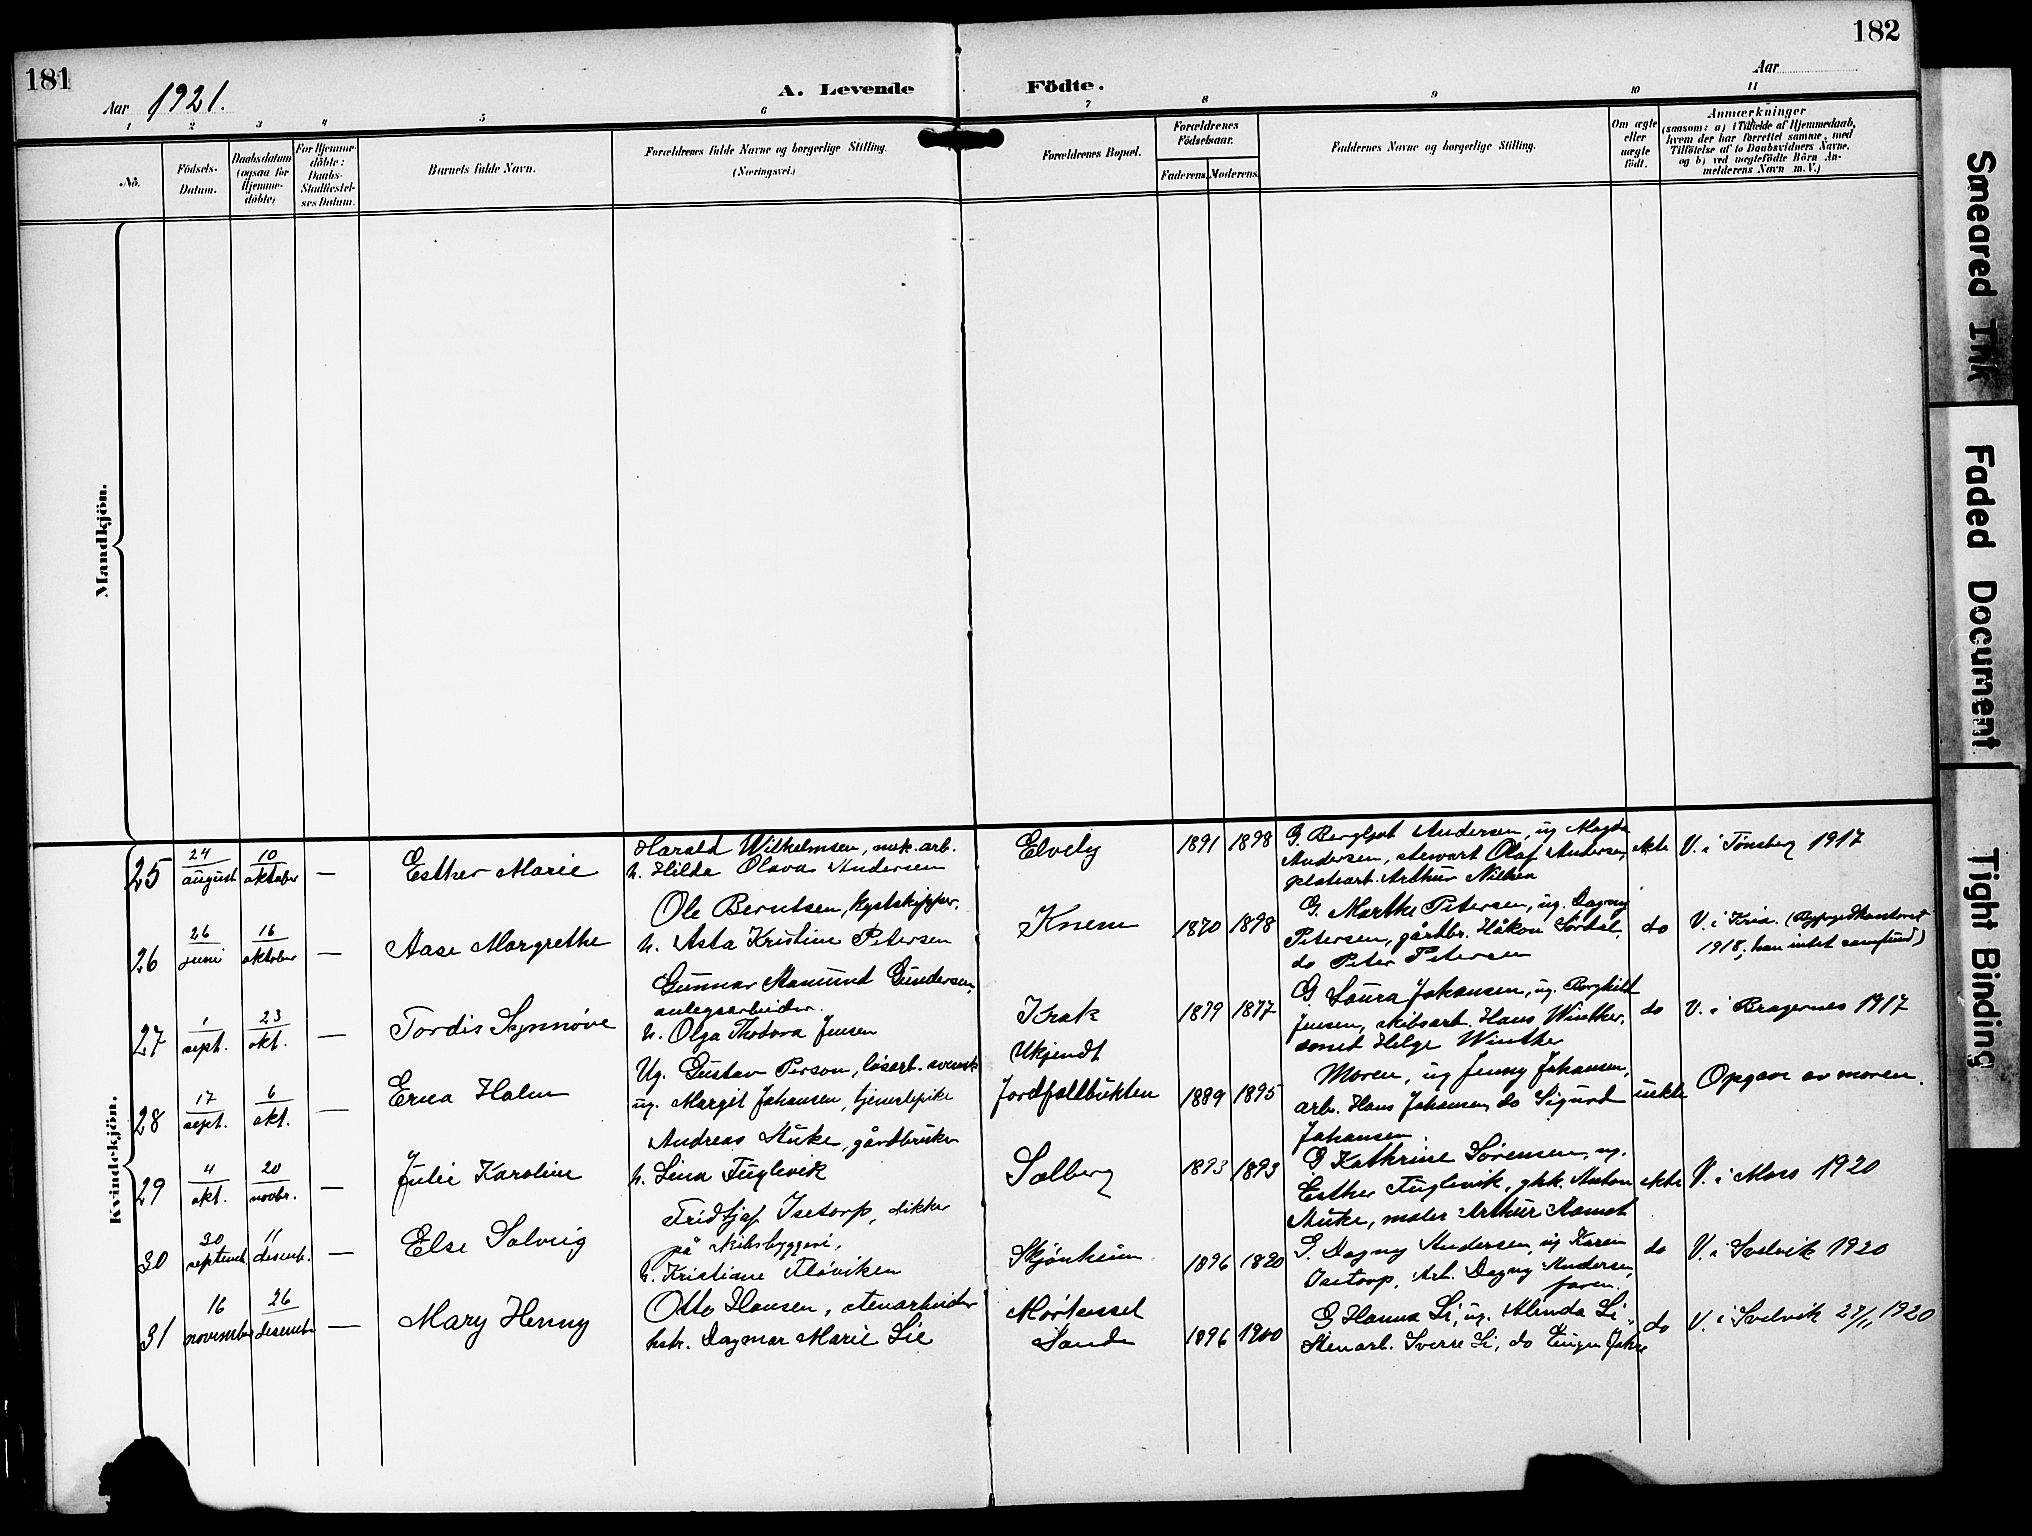 181
182
Aar 1921.
A. Levende
Födte.
Aar
1 2 3 4 5 6 7 8 9 10 11
No.
Födsels-
Datum.
Daabsdatum
(ogsaa for
Hjemme-
döbte)
For Hjemme-
döbte:
Daabs-
Stadfæstel-
ses Datum.
Barnets fulde Navn.
Forældrenes fulde Navne og borgerlige Stilling.
(Næringsvei.)
Forældrenes Bopæl.
Forældrenes
Födselsaar.
Faderens. Moderens.
Faddernes Navne og borgerlige Stilling.
Om ægte
eller
uægte
födt.
Anmærkninger
(saasom: a) i Tilfælde af Hjemmedaab,
hvem der har forrettet samme, med
Tilföielse af to Daabsvidners Navne,
og b) ved uægtefödte Börn An-
melderens Navn m. V.)
Mandkjön.
Kvindekjön.
25
24
august
10
oktober
—
Esther Marie
Harald Wilhelmsen, mek. arb.
h. Hilda Olava Andersen
Elvely
1891 1898
G. Bergljot Andersen, ug Magda
Andersen, stewart Olaf Andersen,
platearb. Arthur Nilsen
ekte
V. i Tønsberg 1917
26
26
juni
16
oktober
—
Aase Margrethe
Ole Berntsen, kystskipper.
h. Asta Kristine Petersen
Knem
1870 1898
G. Marthe Petersen, ug. Dagny
Petersen, gårdbr. Håkon
do Peter Petersen
do
V. i Kria. (Byfogedkontoret
1918, han intet samfund)
27
1
sept.
23
okt.
—
Tordis Synnøve
Gunnar Amund Gundersen,
anlegsarbeider.
h. Olga Thodora Jensen
Krak
1879 1877
G. Laura Johansen, ug. Borghild
Jensen, skibsarb. Hans Winther,
Helge Winther
do
V. i Bragernes 1917
28
17
sept.
6
okt.
—
Erna Holm
Ug. Gustav Person, løsarb. svensk
ug. Margit Johansen, tjenestepike
Ukjendt
Jordfaldbukten
1889 1895
Moren, ug Jenny Johansen,
arb. Hans Johansen, do Sigurd
Johansen.
uekte
Opgave av moren.
29
4
okt.
20
novbr.
—
Julie Karoline
Andreas Auke, gårdbruker
h. Lina Fuglevik
Solberg
1893 1893
G Kathrine Sørensen, ug.
Esther Fuglevik, gbk. Anton
Auke, maler Arthur Aamot
ekte
V. i Moss 1920
30
30
septemb.
11
desemb.
—
Else Solveig
Fridtjof Isetorp, stikker
på skibsbyggeri,
h. Kristiane Fløviken
Skjønheim
1896 1820
G. Dagny Andersen, ug Karen
Isetorp, Arb. Dagny Andersen,
faren.
do
V. i Svelvik 1920
31
16
november
26
desembr
—
Mary Henny
Otto Hansen, stenarbeider
hstr. Dagmar Marie Lie
Sande
1896 1900
G Hanna Li, ug. Alinda Li,
Stenarb. Sverre Li, do
do
V. i Svelvik 27/11 1920
Smeared Ink
Faded Document
Tight Binding